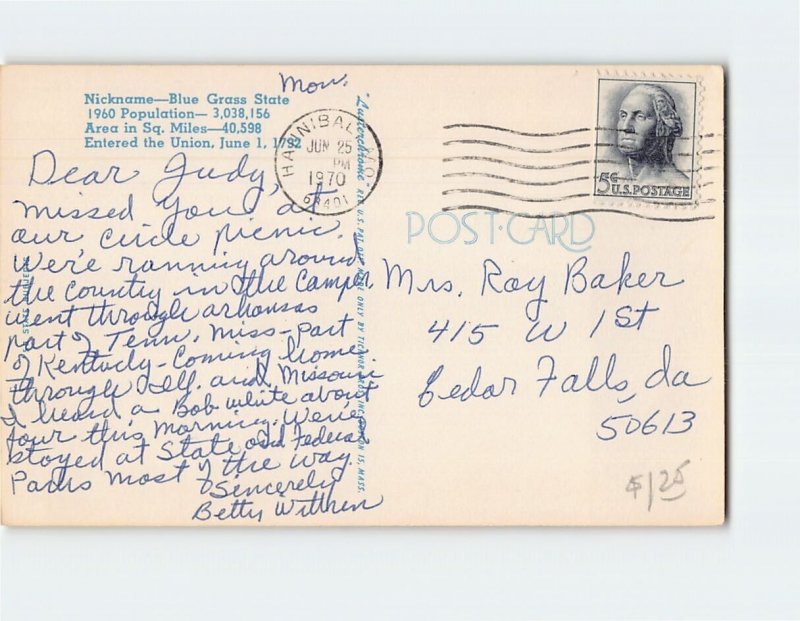 Mon.
Nickname—Blue Grass State
1960 Population— 3,038,156
Area in Sq. Miles—40,598
Entered the Union, June 1, 1792
HANNIBAL, MO.
JUN 25
PM
1970
63401
5¢
U.S. POSTAGE
POST CARD
Dear Judy,
missed you at
our circle picnic.
We're running around
the country in the camper,
went through arkansas
part of Tenn, Miss-part
of Kentucky-Coming home
through Ill. and Missouri
I heard a Bob white about
four this morning. We've
stayed at State and Federal
Parks most of the way.
Sincerely
Betty
Mrs. Ray Baker
415 W 1St
Cedar Falls, Ia
50613
$125